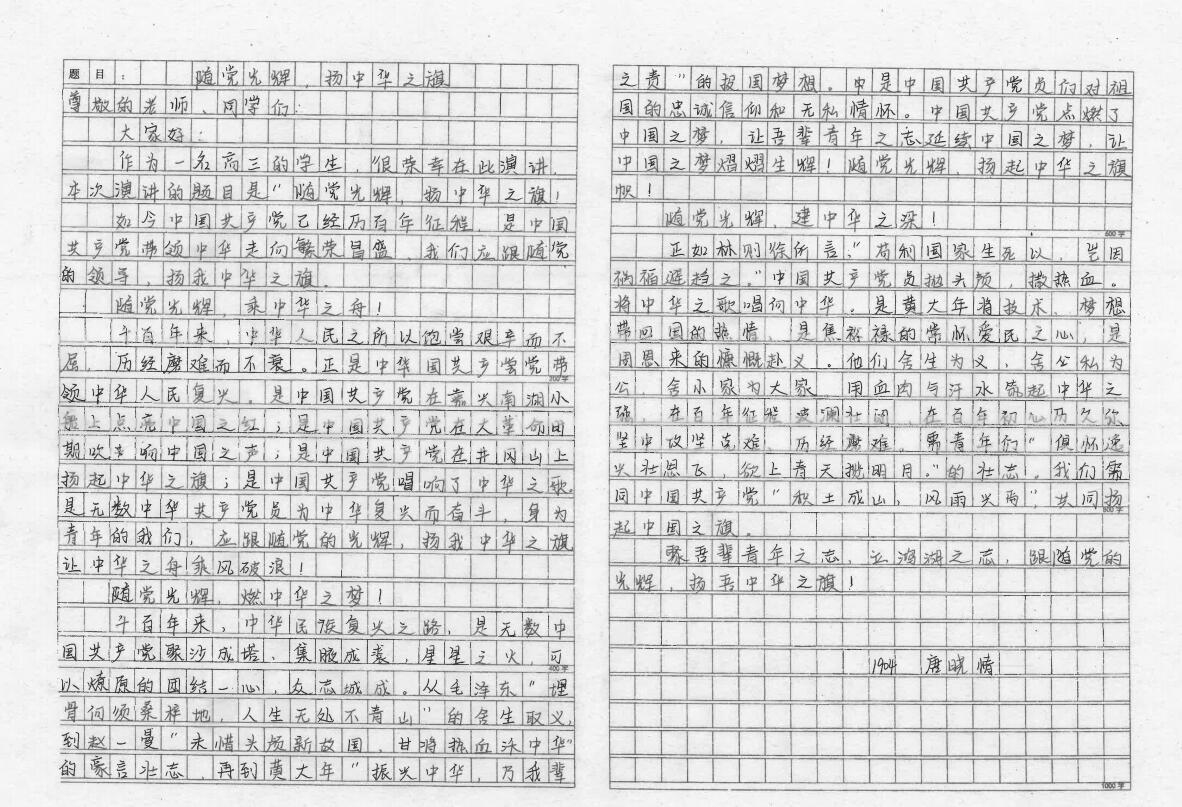 题目：随党光辉，扬中华之旗
尊敬的老师、同学们：
大家好：
作为一名高三的学生，很荣幸在此演讲，
本次演讲的题目是“随党光辉，扬中华之旗！
如今中国共产党已经历百年征程，是中国
共产党带领中华走向繁荣昌盛，我们应跟随党
的领导，扬我中华之旗。
随党光辉，乘中华之舟！
千百年来，中华人民之所以饱尝艰辛而不
屈，历经磨难而不衰。正是中华国共产党党带
200字
领中华人民复兴。是中国共产党在嘉兴南湖小
船上点亮中国之红；是中国共产党在大革命时
期吹响中国之声；是中国共产党在井冈山上
扬起中华之旗；是中国共产党唱响了中华之歌。
是无数中华共产党员为中华复兴而奋斗，身为
青年的我们，应跟随党的光辉，扬我中华之旗
让中华之舟乘风破浪！
随党光辉，燃中华之梦！
千百年来，中华民族复兴之路，是无数中
国共产党聚沙成塔，集腋成裘，星星之火，可
400字
以燎原的团结一心，众志城成。从毛泽东“埋
骨何须桑梓地，人生无处不青山”的舍生取义，
到赵一曼“未惜头颅新故国，甘将热血沃中华”
的豪言壮志，再到黄大年“振兴中华，乃我辈
之责”的报国梦想。中是中国共产党员们对祖
国的忠诚信仰和无私情怀。中国共产党点燃了
中国之梦，让吾辈青年之志延续中国之梦，让
中国之梦熠熠生辉！随党光辉，扬起中华之旗
帜！
随党光辉，建中华之深！
600字
正如林则徐所言：“苟利国家生死以，岂因
祸福避趋之。”中国共产党员抛头颅，撒热血。
将中华之歌唱向中华。是黄大年将技术、梦想
带回国的热情，是焦裕禄的常怀爱民之心，是
周恩来的慷慨赴义。他们舍生为义，舍公私为
公，舍小家为大家，用血肉与汗水筑起中华之
强，在百年征程波澜壮阔，在百年初心历久弥
坚中攻坚克难，历经磨难，需青年们“俱怀逸
兴壮思飞，欲上青天揽明月。”的壮志。我们需
同中国共产党“积土成山，风雨兴焉”共同扬
800字
起中国之旗。
聚吾辈青年之志，立鸿湖之志，跟随党的
光辉，扬吾中华之旗！
1904 唐晓情
1000字